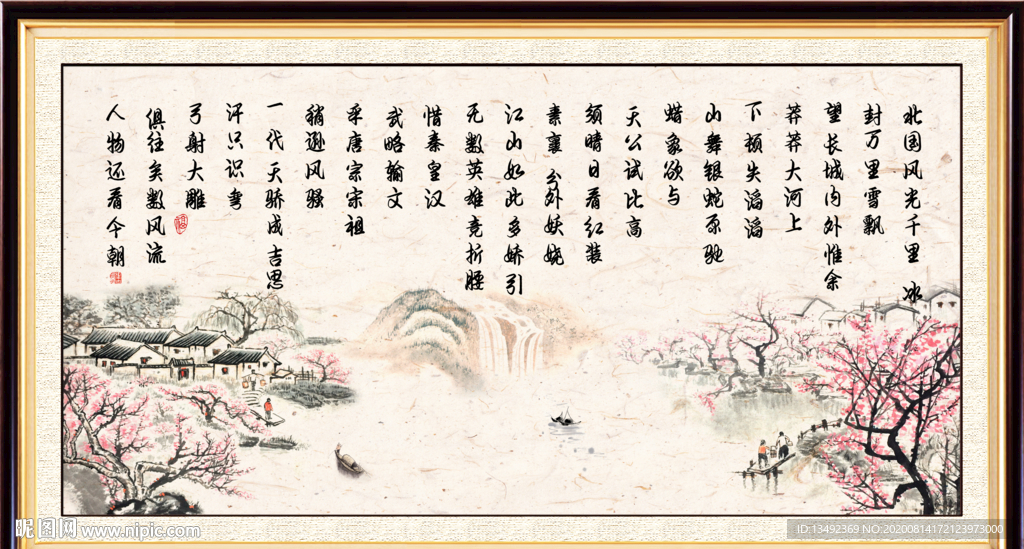 北国风光千里 冰
封万里雪飘
望长城内外惟余
莽莽大河上
下顿失滔滔
山舞银蛇原驰
蜡象欲与
天公试比高
须晴日看红装
素裹 分外妖娆
江山如此多娇引
无数英雄竞折腰
惜秦皇汉
武略输文
采唐宗宋祖
稍逊风骚
一代天骄成吉思
汗只识弯
弓射大雕
俱往矣数风流
人物还看今朝
昵图网 www.nipic.com
ID:13492369 NO:20200814172123973000